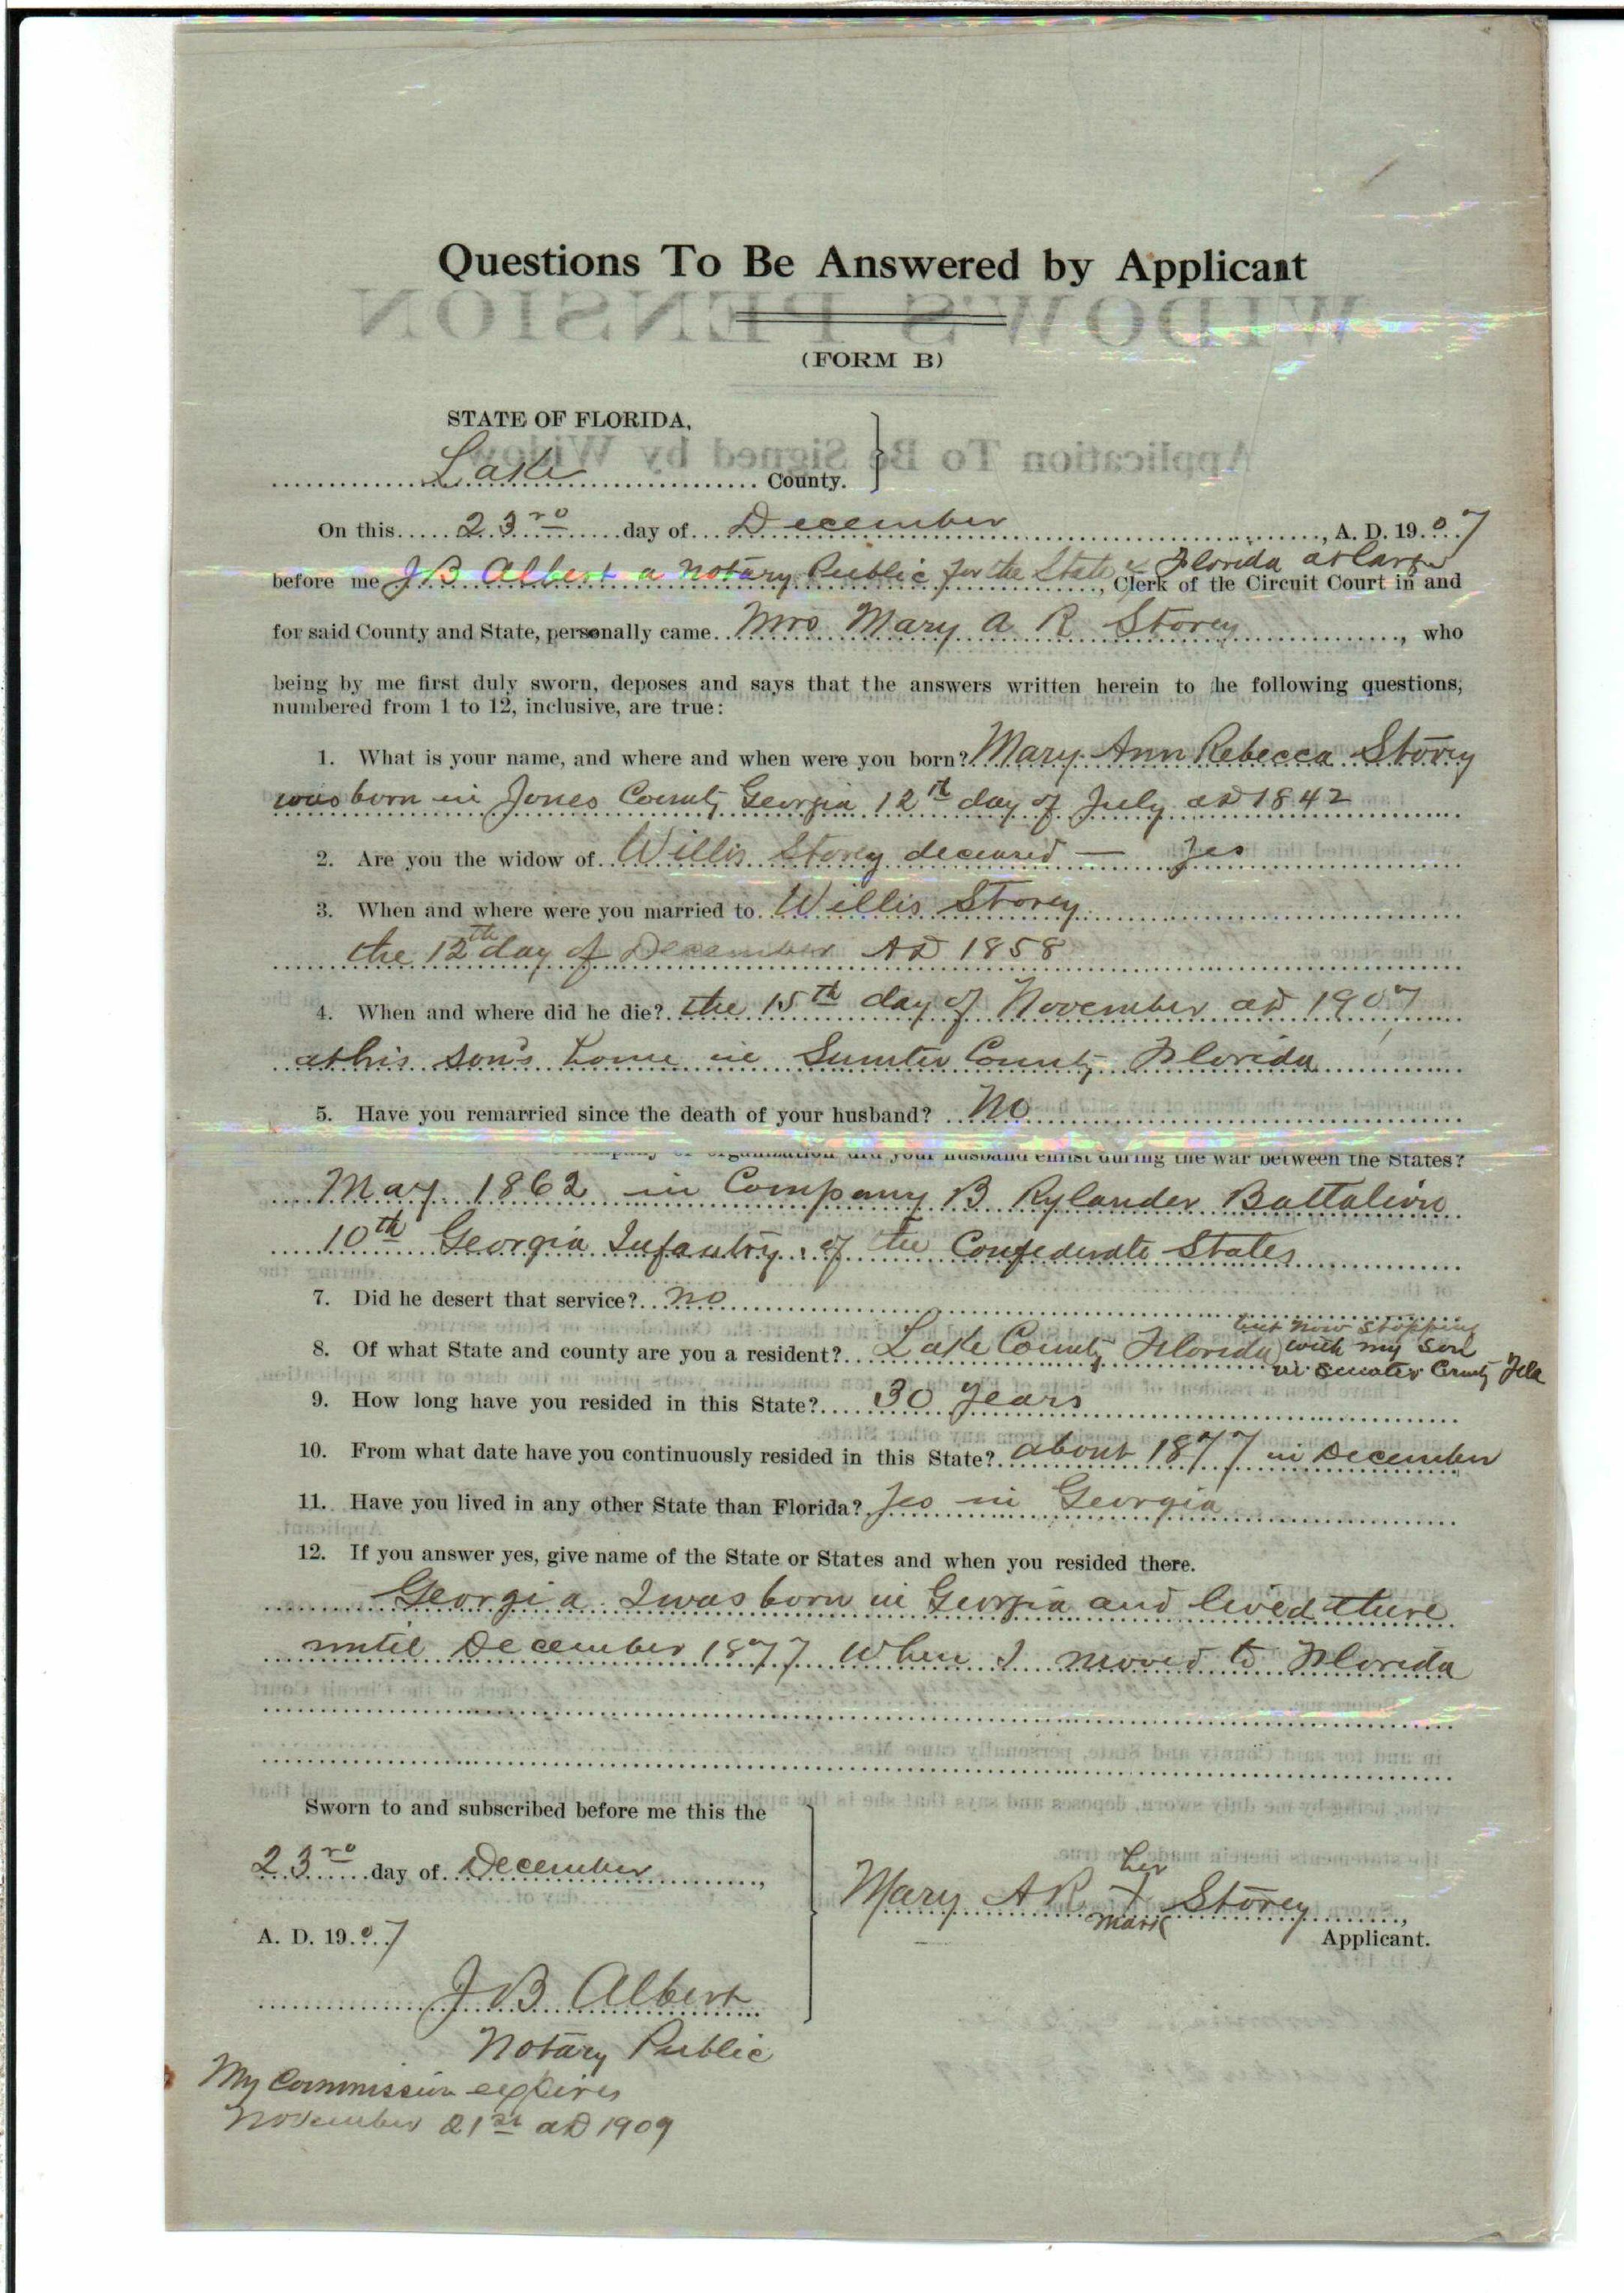 Questions To Be Answered by Applicant
WIDOW'S PENSION
(FORM B)
STATE OF FLORIDA,
Application To Be Signed by Widow
Lake County.
On this 23rd day of December, A. D. 1907
before me J B Albert a Notary Public for the State of Florida at Large, Clerk of the Circuit Court in and
for said County and State, personally came Mrs Mary A R Storey, who
being by me first duly sworn, deposes and says that the answers written herein to he following questions,
numbered from 1 to 12, inclusive, are true:
1. What is your name, and where and when were you born? Mary Ann Rebecca Storey
was born in Jones County Georgia 12th day of July AD 1842
2. Are you the widow of Willis Storey deceased — Yes
3. When and where were you married to Willis Storey
the 12th day of December AD 1858
4. When and where did he die? the 15th day of November AD 1907
at his son's home in Sumter County Florida
5. Have you remarried since the death of your husband? No
company or organization did your husband enlist during the war between the States?
May 1862 in Company B Rylander Battalion
10th Georgia Infantry of the Confederate States
7. Did he desert that service? no
8. Of what State and county are you a resident? Lake County Florida but now stopping
with my Son
in Sumter County Fla
9. How long have you resided in this State? 30 years
10. From what date have you continuously resided in this State? about 1877 in December
11. Have you lived in any other State than Florida? Yes in Georgia
12. If you answer yes, give name of the State or States and when you resided there.
Georgia I was born in Georgia and lived there
until December 1877 When I moved to Florida
Sworn to and subscribed before me this the
23rd day of December,
A. D. 1907
her
Mary A R X Storey,
mark
Applicant.
J B Albert
Notary Public
My Commission expires
November 21st AD 1909